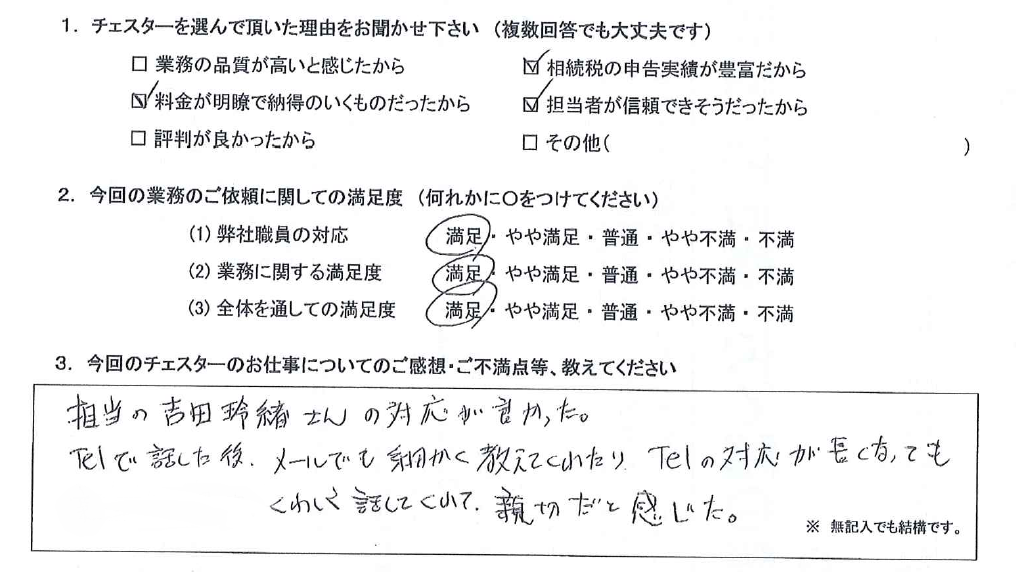 1. チェスターを選んで頂いた理由をお聞かせ下さい (複数回答でも大丈夫です)
□ 業務の品質が高いと感じたから ☑ 相続税の申告実績が豊富だから
☑ 料金が明瞭で納得のいくものだったから ☑ 担当者が信頼できそうだったから
□ 評判が良かったから □ その他( )
2. 今回の業務のご依頼に関しての満足度 (何れかに○をつけてください)
(1) 弊社職員の対応 満足・やや満足・普通・やや不満・不満
(2) 業務に関する満足度 満足・やや満足・普通・やや不満・不満
(3) 全体を通しての満足度 満足・やや満足・普通・やや不満・不満
3. 今回のチェスターのお仕事についてのご感想・ご不満点等、教えてください
担当の吉田玲緒さんの対応が良かった。
Telで話した後、メールでも細かく教えてくれたり Telの対応が長くなっても
くわしく話してくれて、親切だと感じた。
※ 無記入でも結構です。